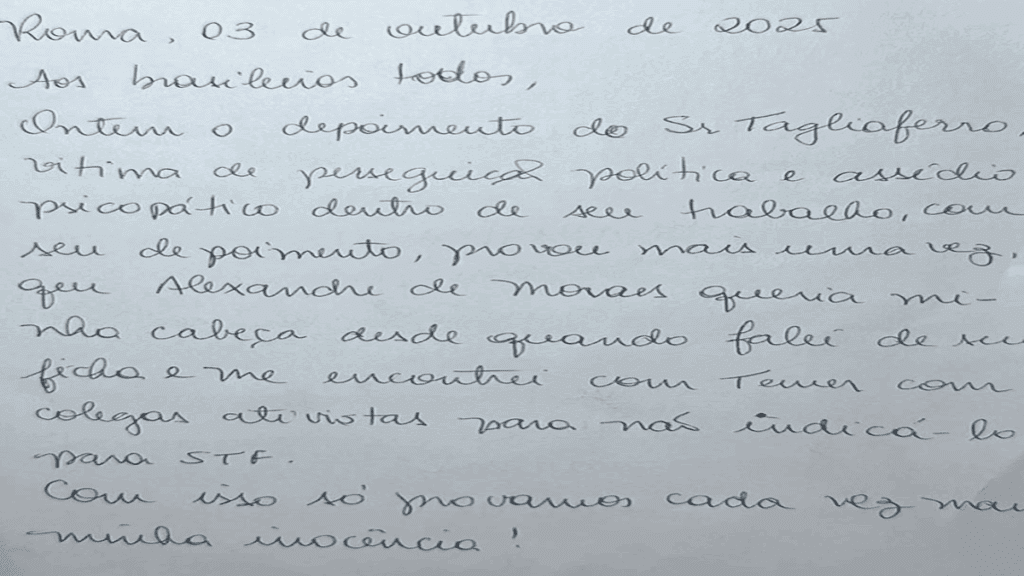 Roma, 03 de outubro de 2025
Aos brasileiros todos,
Ontem o depoimento do Sr Tagliaferro,
vítima de perseguição política e assédio
psicopático dentro de seu trabalho, com
seu depoimento, provou mais uma vez,
que Alexandre de Moraes queria mi-
nha cabeça desde quando falei de seu
ficha e me encontrei com Temer com
colegas ativistas para não indicá-lo
para STF.
Com isso só provamos cada vez mai
minha inocência!